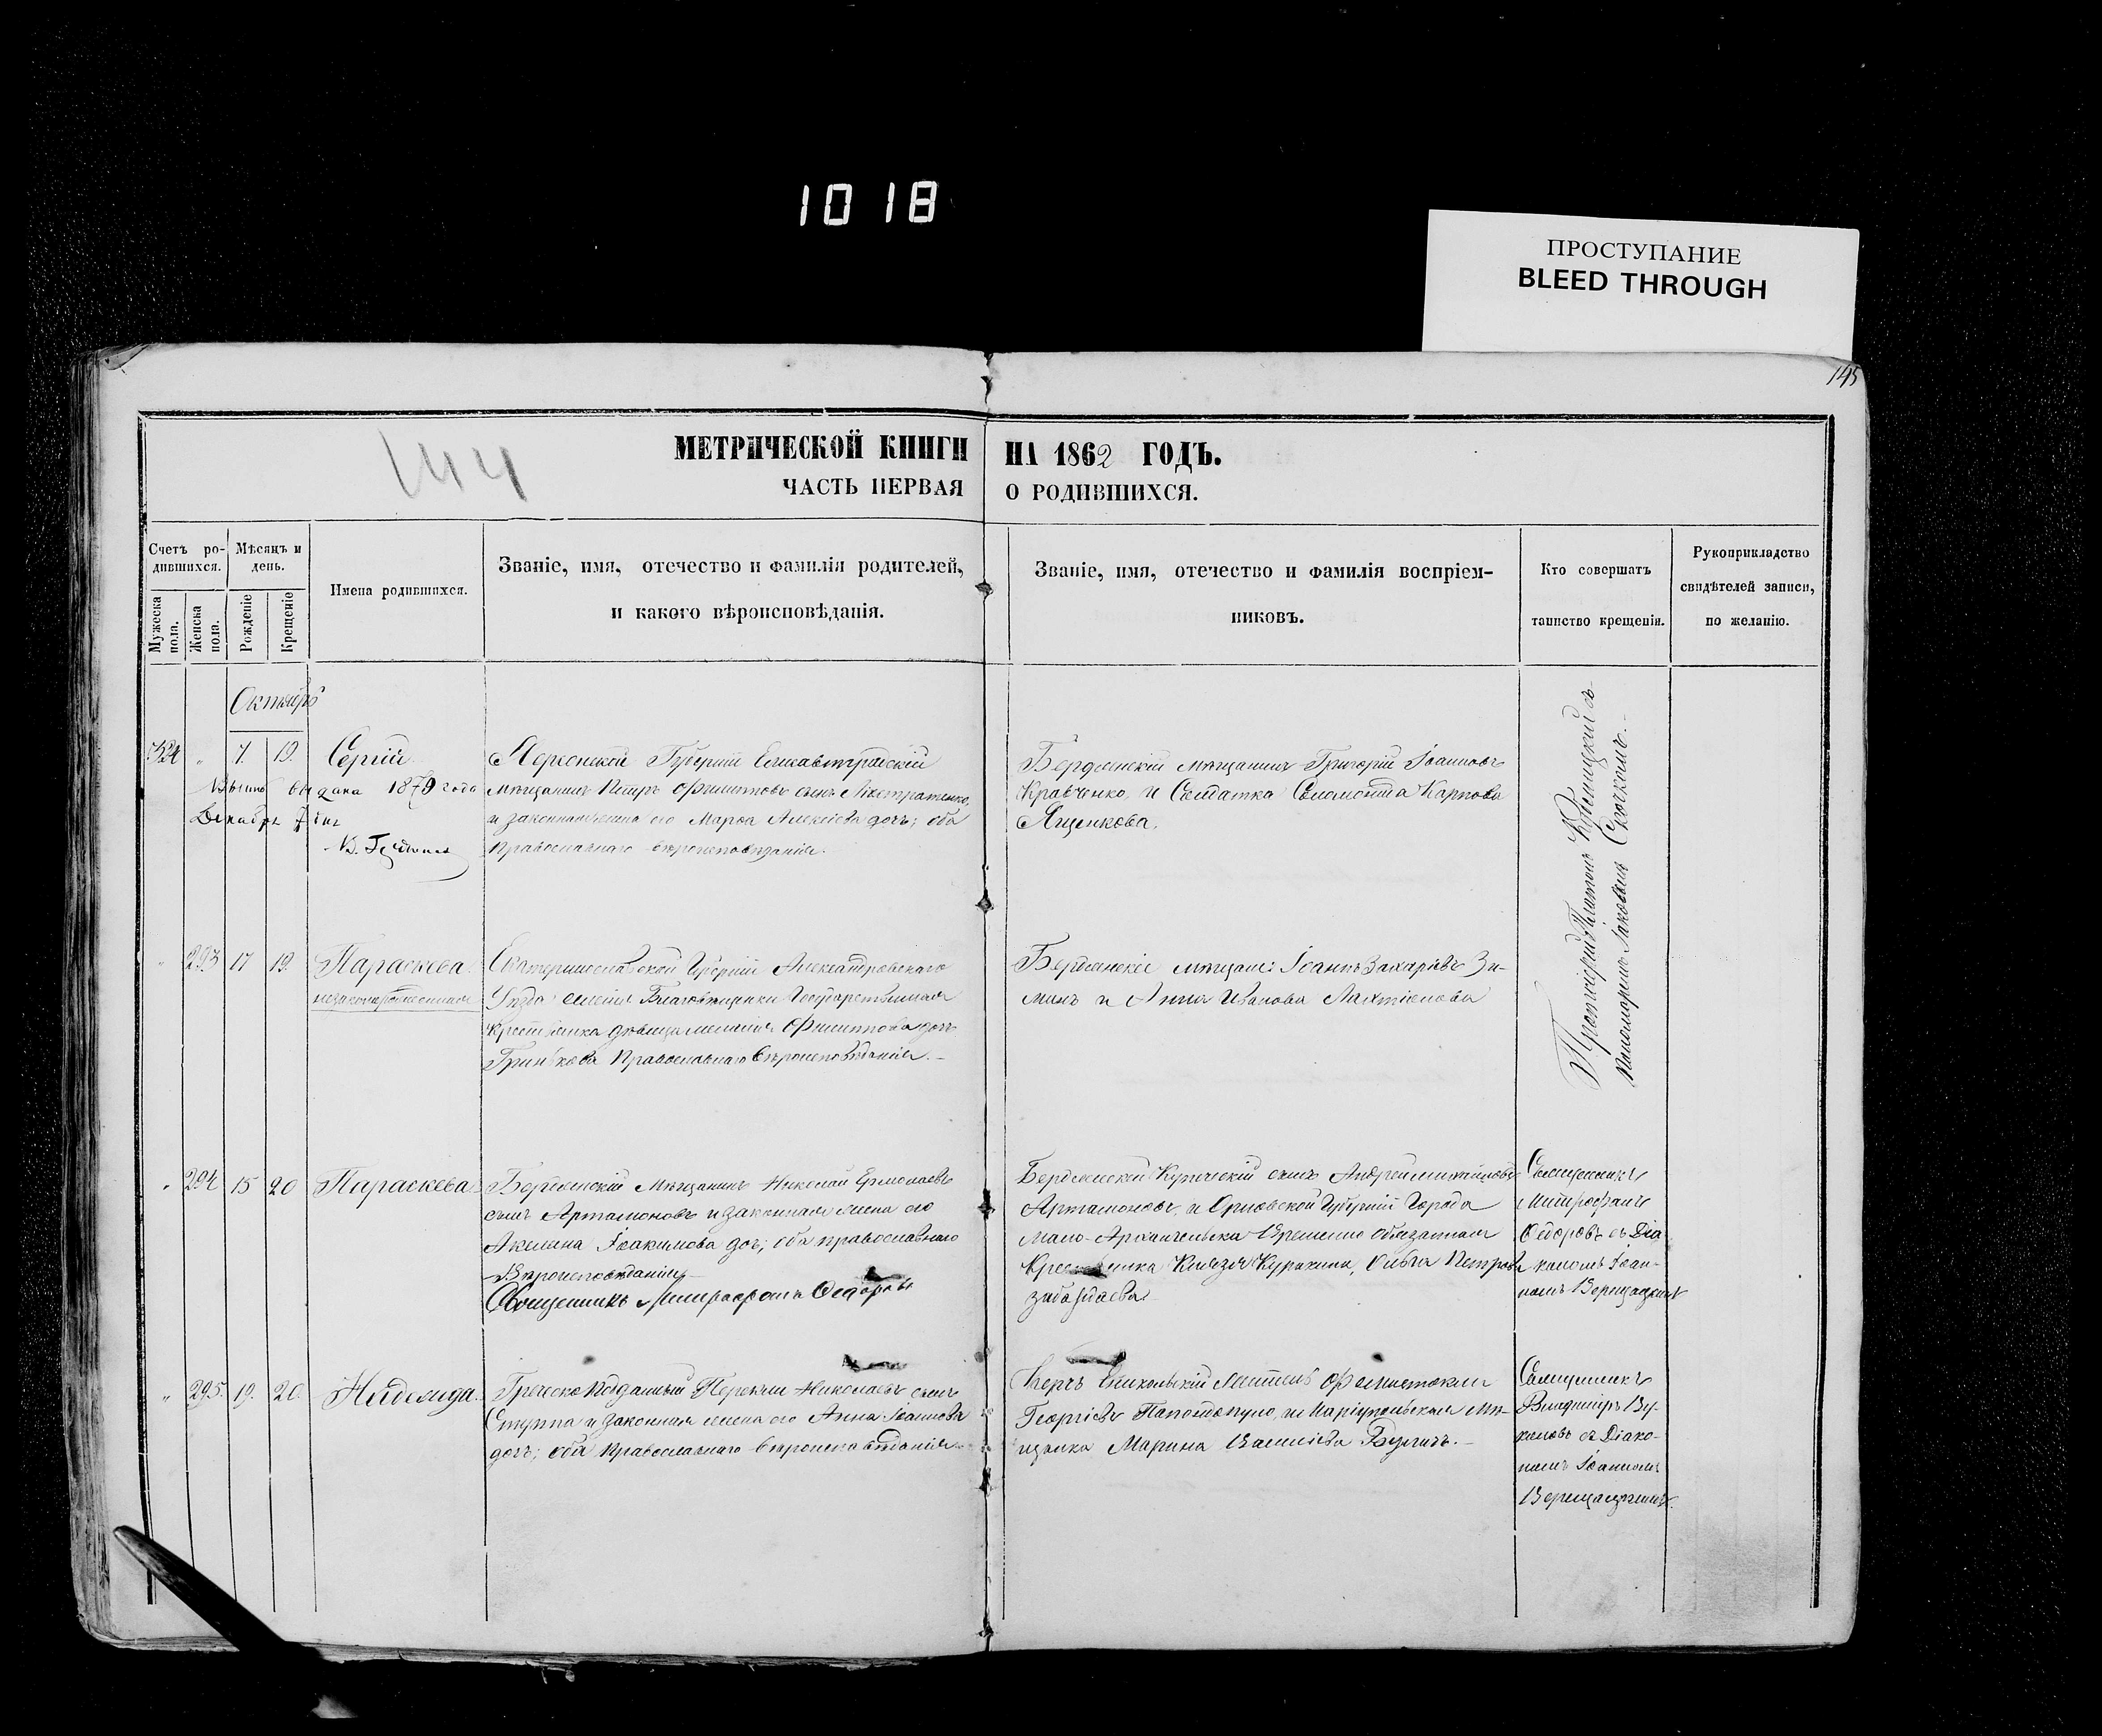 10 18
ПРОСТУПАНИЕ
BLEED THROUGH
145
144
МЕТРИЧЕСКОЙ КНИГИ НА 1862 ГОДЪ.
ЧАСТЬ ПЕРВАЯ О РОДИВШИХСЯ.
Счетъ ро-
дившихся.
Мужеска пола.
Женска пола.
Мѣсяцъ и
день.
Рожденіе
Крещеніе
Имена родившихся.
Званіе, имя, отечество и фамилія родителей,
и какого вѣроисповѣданія.
Званіе, имя, отечество и фамилія воспріем-
никовъ.
Кто совершатъ
таинство крещенія.
Рукоприкладство
свидѣтелей записи,
по желанію.
Октябрь
324 " 7. 19. Сергій
выдана 1879 года
Декабря 7 дня
Херсонской Губерніи Елисавтградскій
мѣщанинъ Петръ Филиповъ сынъ
и законная жена его Марѳа Алексіева дочь; оба
православнаго вѣроисповѣданія.
Бердянскій мѣщанинъ Григорій Іоанновъ
Кравченко, и Солдатка Соломонія Карпова
Ященкова.
Протоіерей Платонъ съ
Пономаремъ Іаковомъ
" 293 17 19. Параскева.
незаконнорожденная
Екатеринославской Губерніи Александровскаго
Уѣзда селенія Благовѣщенки Государственная
крестьянка дѣвица Филиппова дочь
Гринькова Православнаго вѣроисповѣданія.
Бердянскіе мѣщане: Іоаннъ Захаріевъ Зи-
минъ и Анна Иванова
" 294 15 20 Параскева.
Бердянскій Мѣщанинъ Николай Ермолаевъ
сынъ Артамоновъ и законная жена его
Акелина Іоакимова доч; оба православнаго
Вѣроисповѣданія
Священникъ Митрофанъ Федоровъ
Бердянскій Купеческій сынъ Андрей Михайловъ
Артамоновъ, и Орловской Губерніи Города
Мало-Архангельска Временно обязанная
Крестьянка Князя Куракина, Ольга Петрова
Священникъ
Митрофанъ
Ѳедоровъ съ Діа-
кономъ Іоан-
номъ Верещацкимъ
" 295. 19. 20.
Греческо Подданный Николаевъ сынъ
и законная жена его Анна Іоаннова
дочь; оба православнаго вѣроисповѣданія.
Керчь Еникольскій Ѳемистокли
Георгіевъ и Маріупольская мѣ-
щанка Марина Василіева
Священникъ
Владиміръ Ву-
коловъ съ Діако-
номъ Іоанномъ